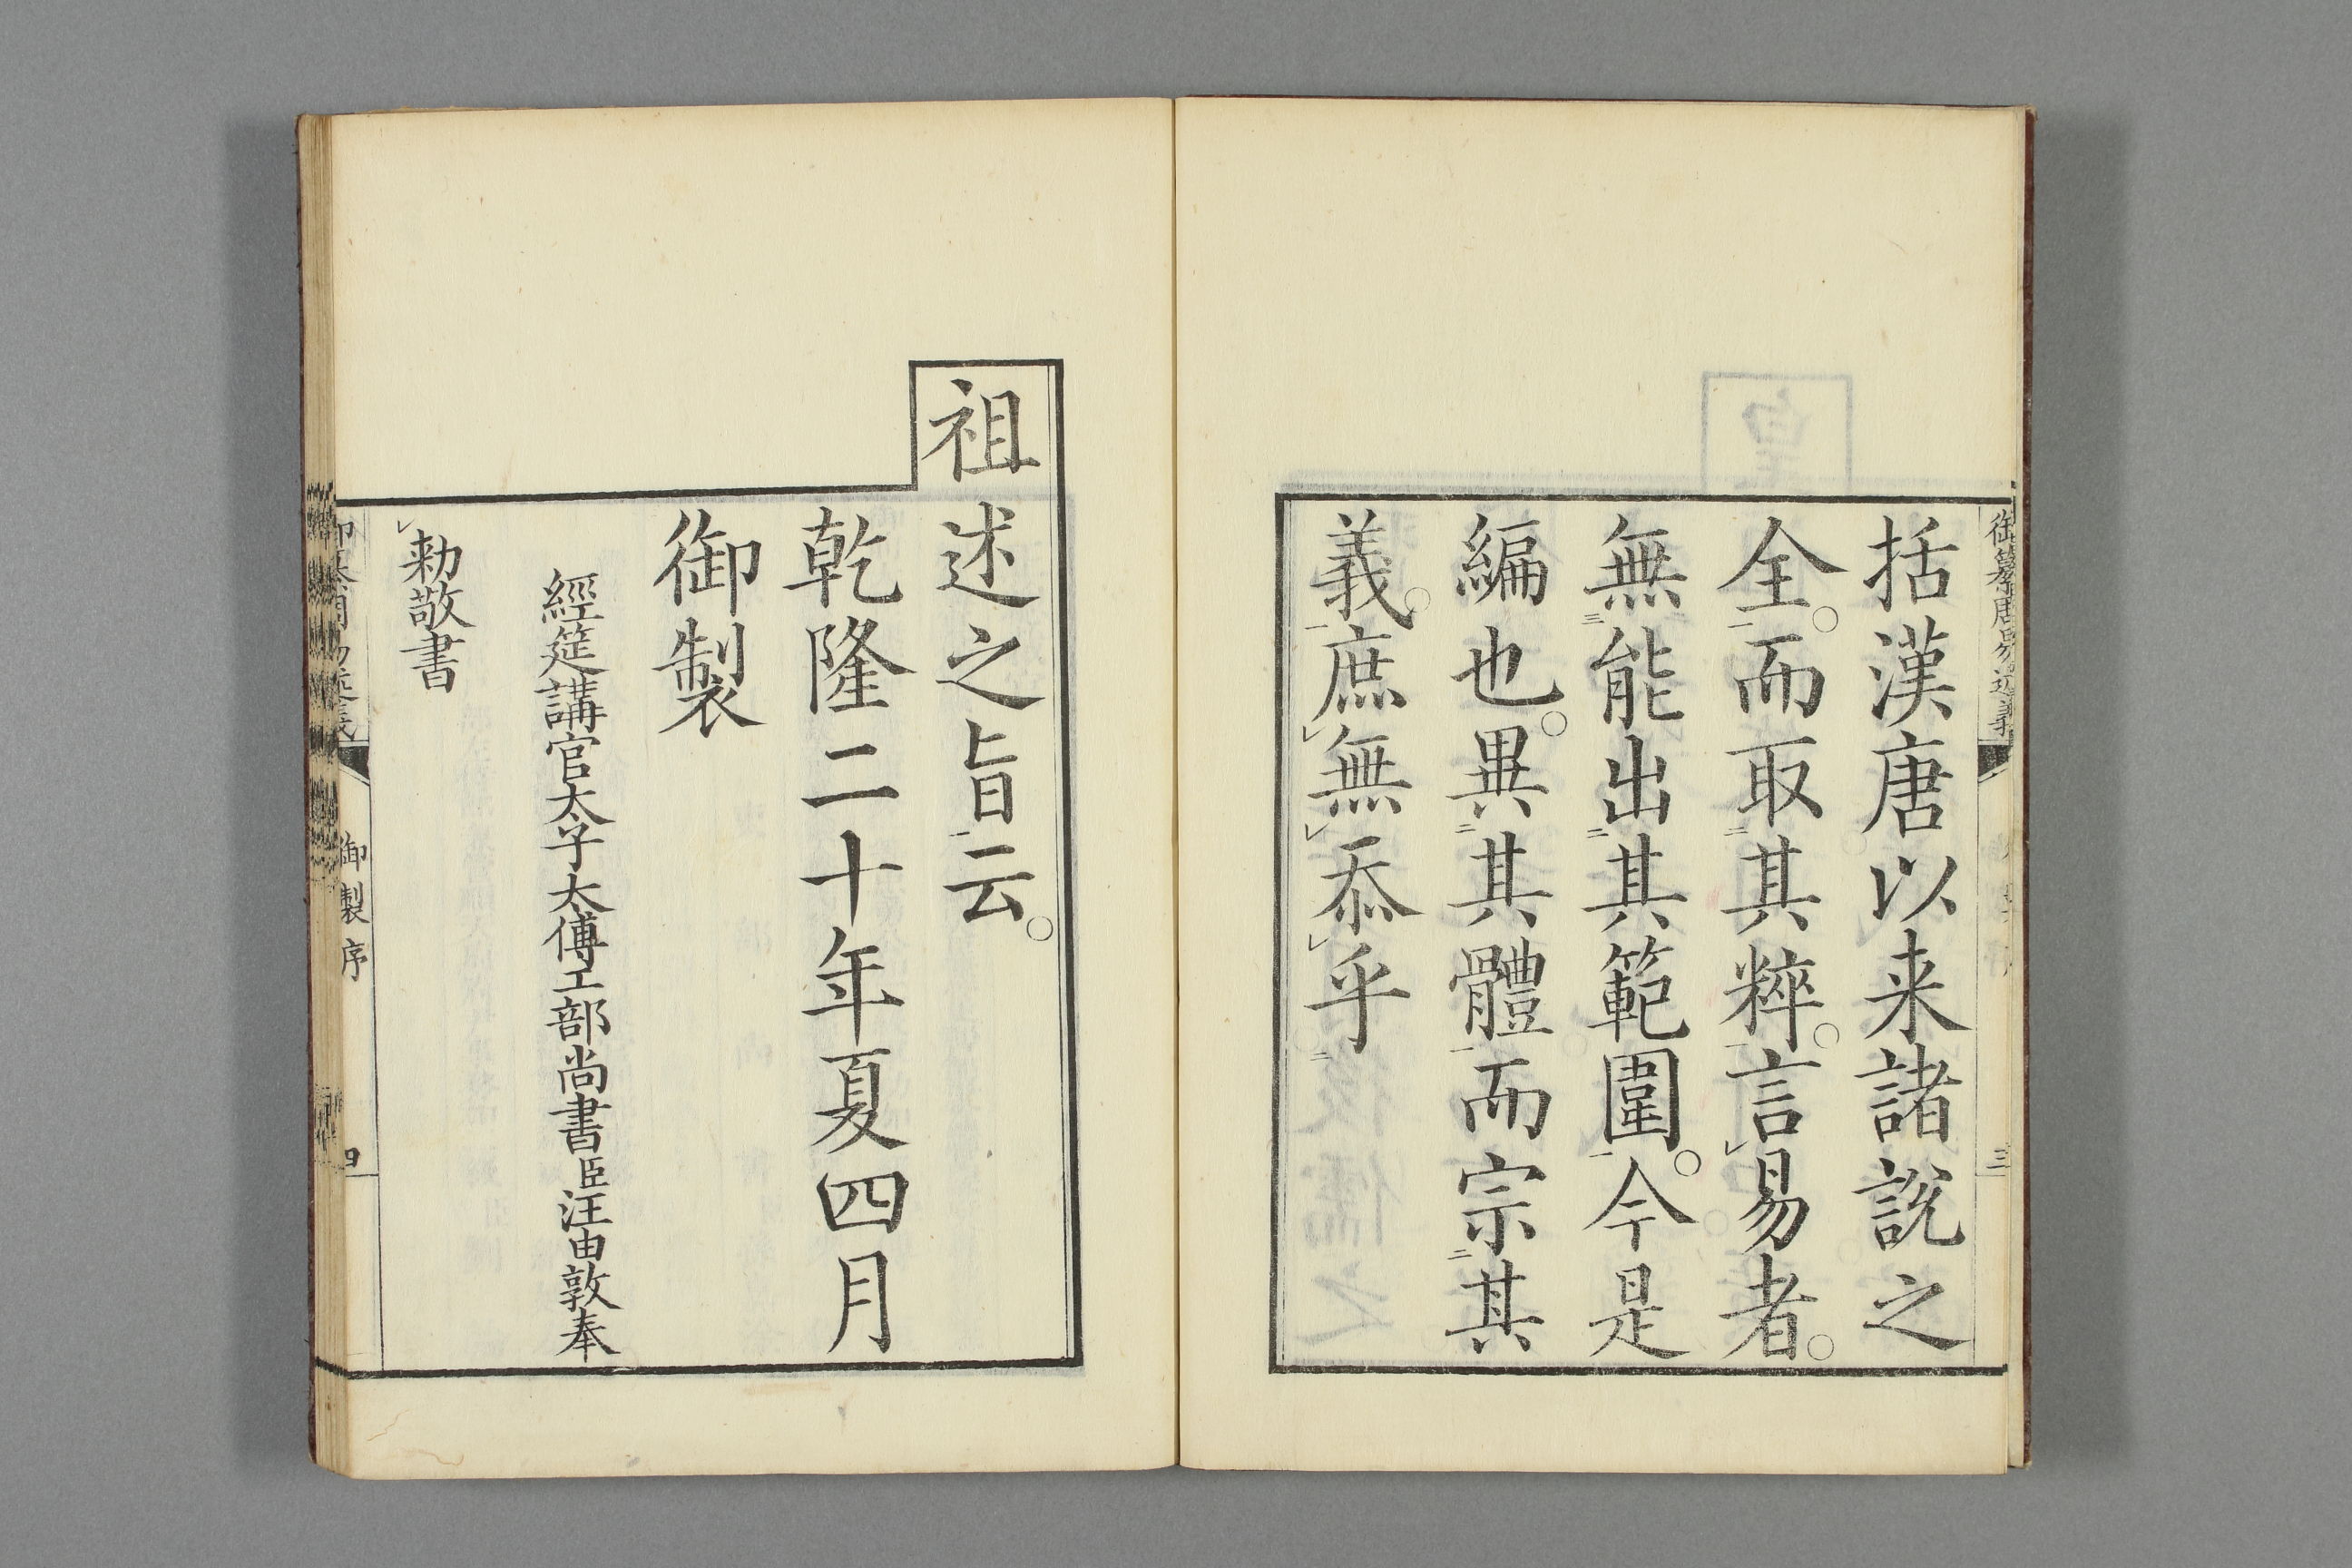 括漢唐以来諸說之
全。而取其粹。言易者。
無能出其範圍。今是
編也。異其體而宗其
義。庶無忝乎
祖述之旨云。
乾隆二十年夏四月
御製
經筵講官太子太傅工部尚書臣汪由敦奉
勅敬書
御纂周易述義
三
御製序
四